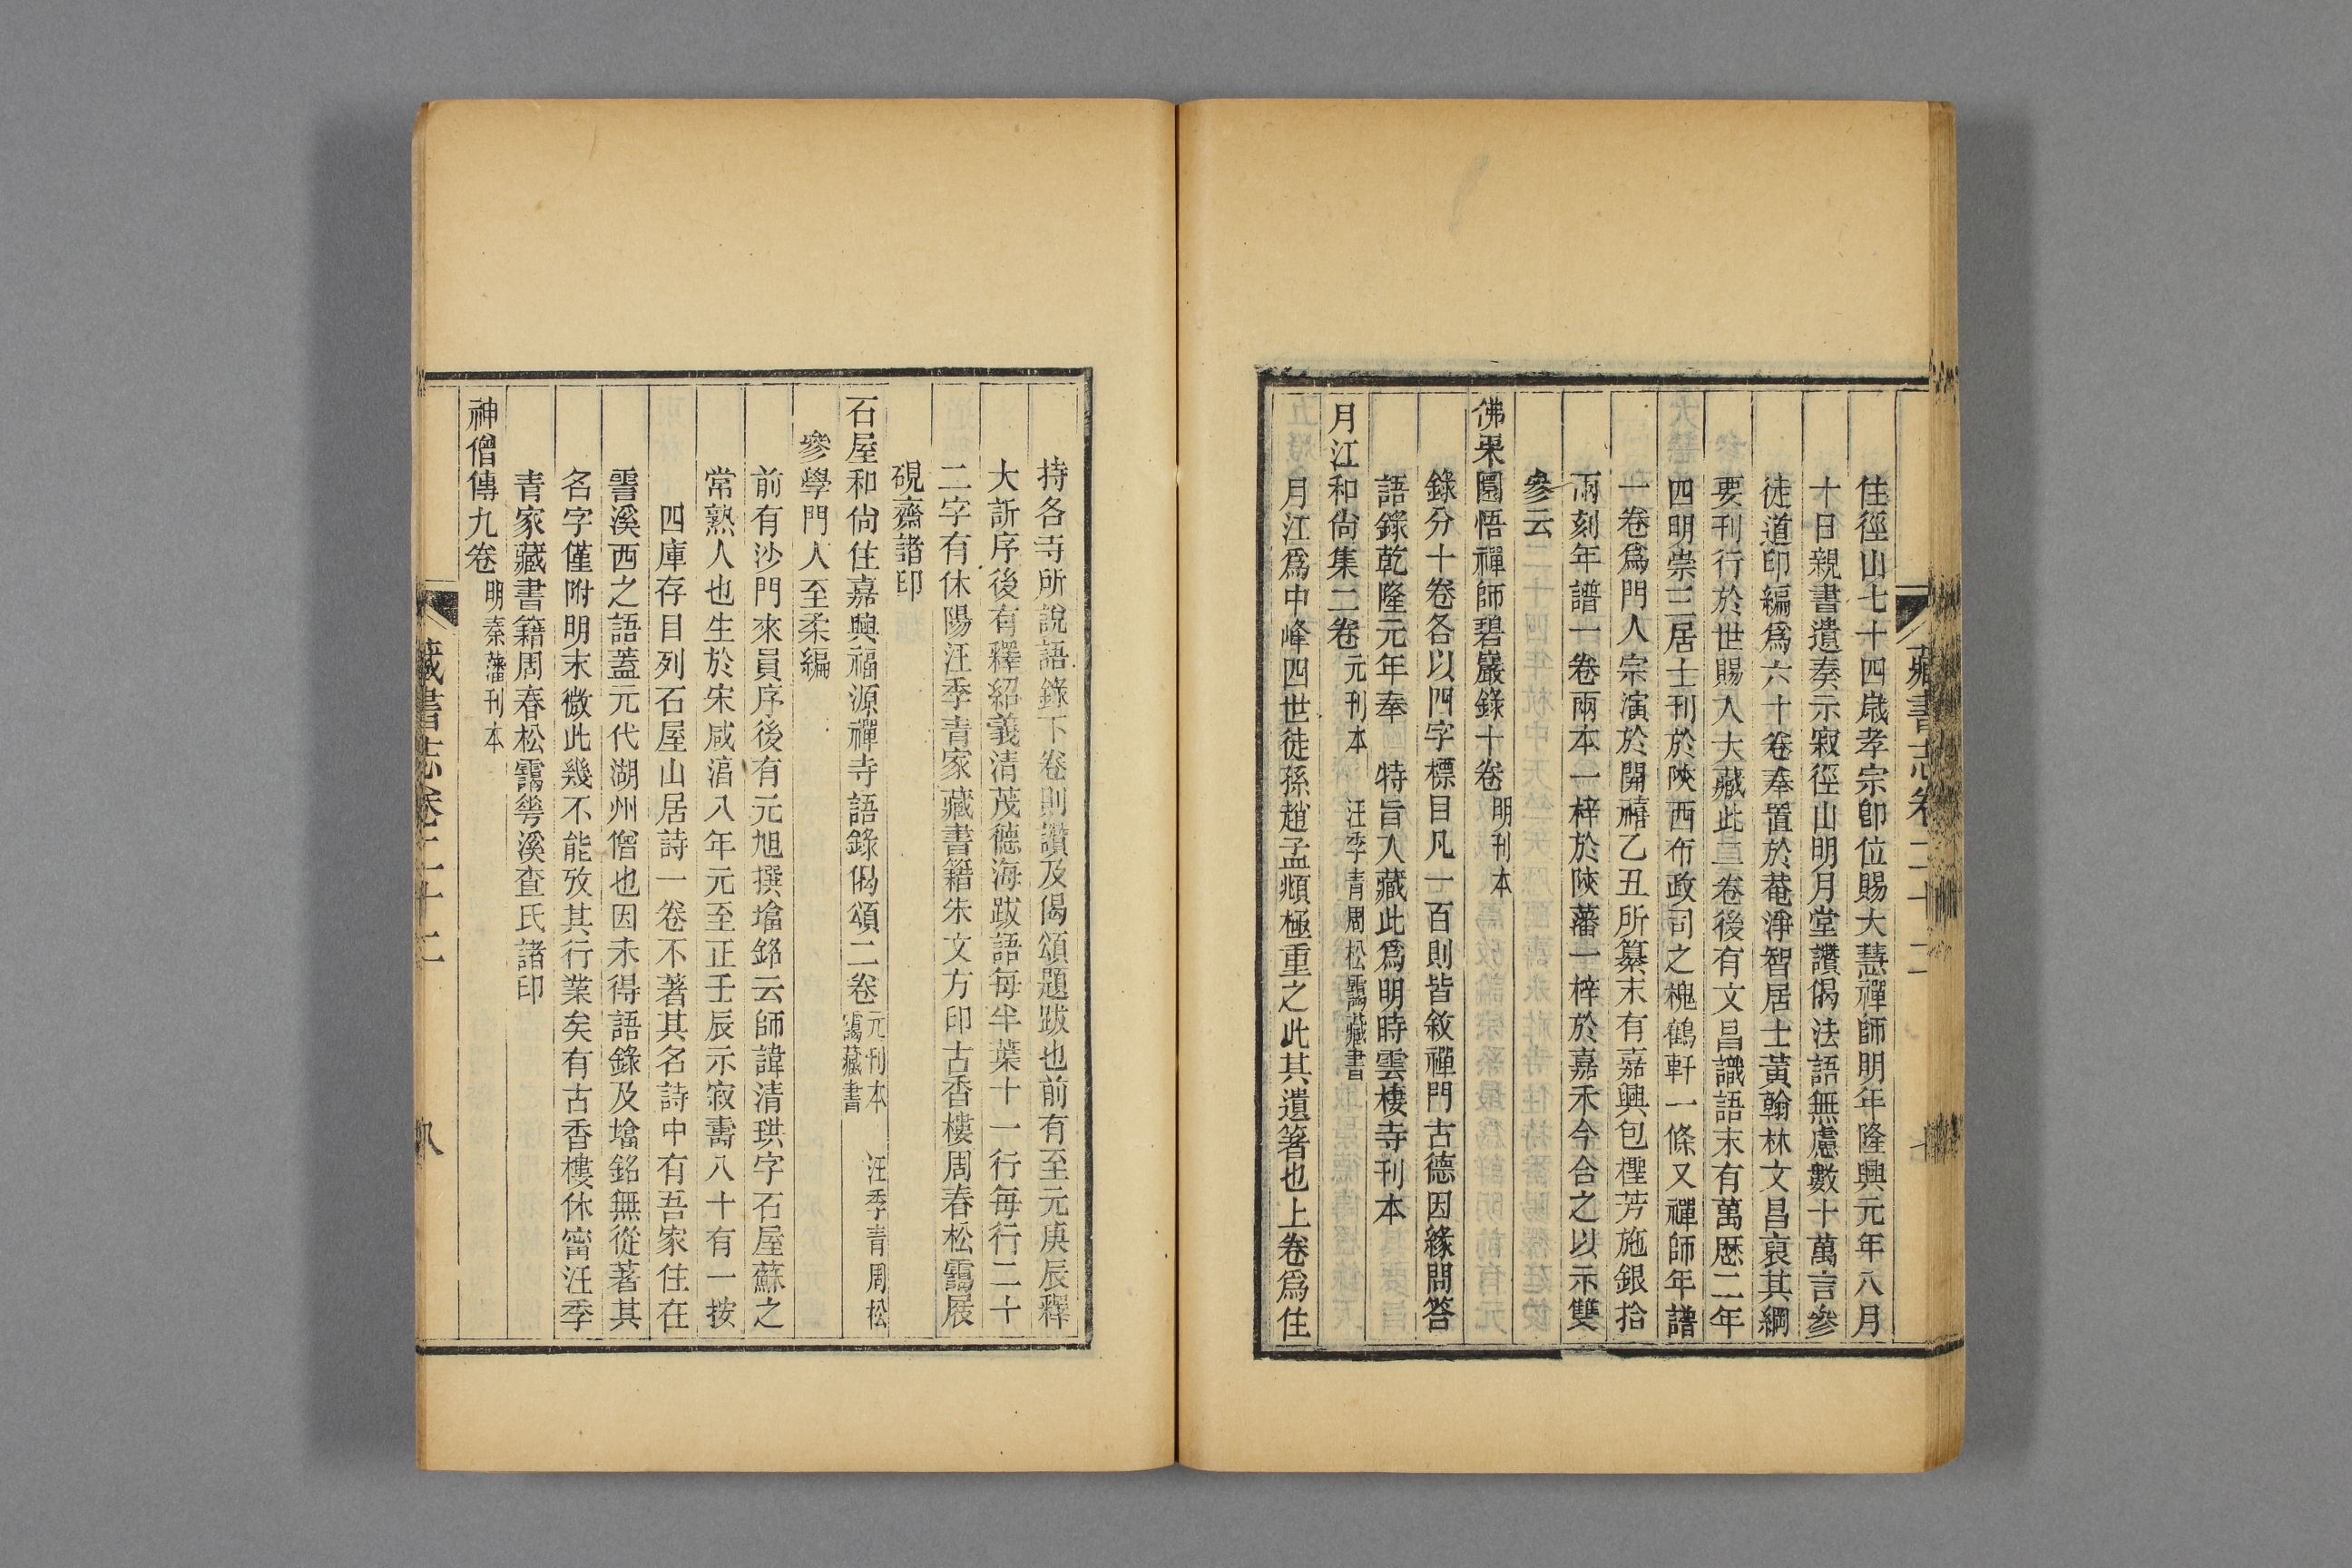 藏書志卷二十二
住徑山七十四歲孝宗卽位賜大慧禪師明年隆興元年八月
十日親書遺奏示寂徑山明月堂讚偈法語無慮數十萬言參
徒道印編爲六十卷奉置於菴淨智居士黃翰林文昌裒其綱
要刊行於世賜入大藏此二卷後有文昌識語末有萬厯二年
四明崇三居士刊於陝西布政司之槐鶴軒一條又禪師年譜
一卷爲門人宗演於開禧乙丑所纂末有嘉興包檉芳施銀拾
兩刻年譜一卷兩本一梓於陝藩一梓於嘉禾今合之以示雙
參云
佛果圜悟禪師碧巖錄十卷 明刊本
錄分十卷各以四字標目凡一百則皆敘禪門古德因緣問答
語錄乾隆元年奉 特旨入藏此爲明時雲棲寺刊本
月江和尙集二卷 元刊本 汪季青周松靄藏書
月江爲中峰四世徒孫趙孟頫極重之此其遺箸也上卷爲住
持各寺所說語錄下卷則讚及偈頌題跋也前有至元庚辰釋
大訢序後有釋紹義清茂德海跋語每半葉十一行每行二十
二字有休陽汪季青家藏書籍朱文方印古香樓周春松靄展
硯齋諸印
石屋和尙住嘉興福源禪寺語錄偈頌二卷 元刊本 汪季青周松
靄藏書
參學門人至柔編
前有沙門來員序後有元旭撰墖銘云師諱清珙字石屋蘇之
常熟人也生於宋咸淳八年元至正壬辰示寂壽八十有一按
四庫存目列石屋山居詩一卷不著其名詩中有吾家住在
霅溪西之語蓋元代湖州僧也因未得語錄及墖銘無從著其
名字僅附明末微此幾不能攷其行業矣有古香樓休甯汪季
青家藏書籍周春松靄甹溪查氏諸印
神僧傳九卷 明秦藩刊本
藏書志卷二十二
八